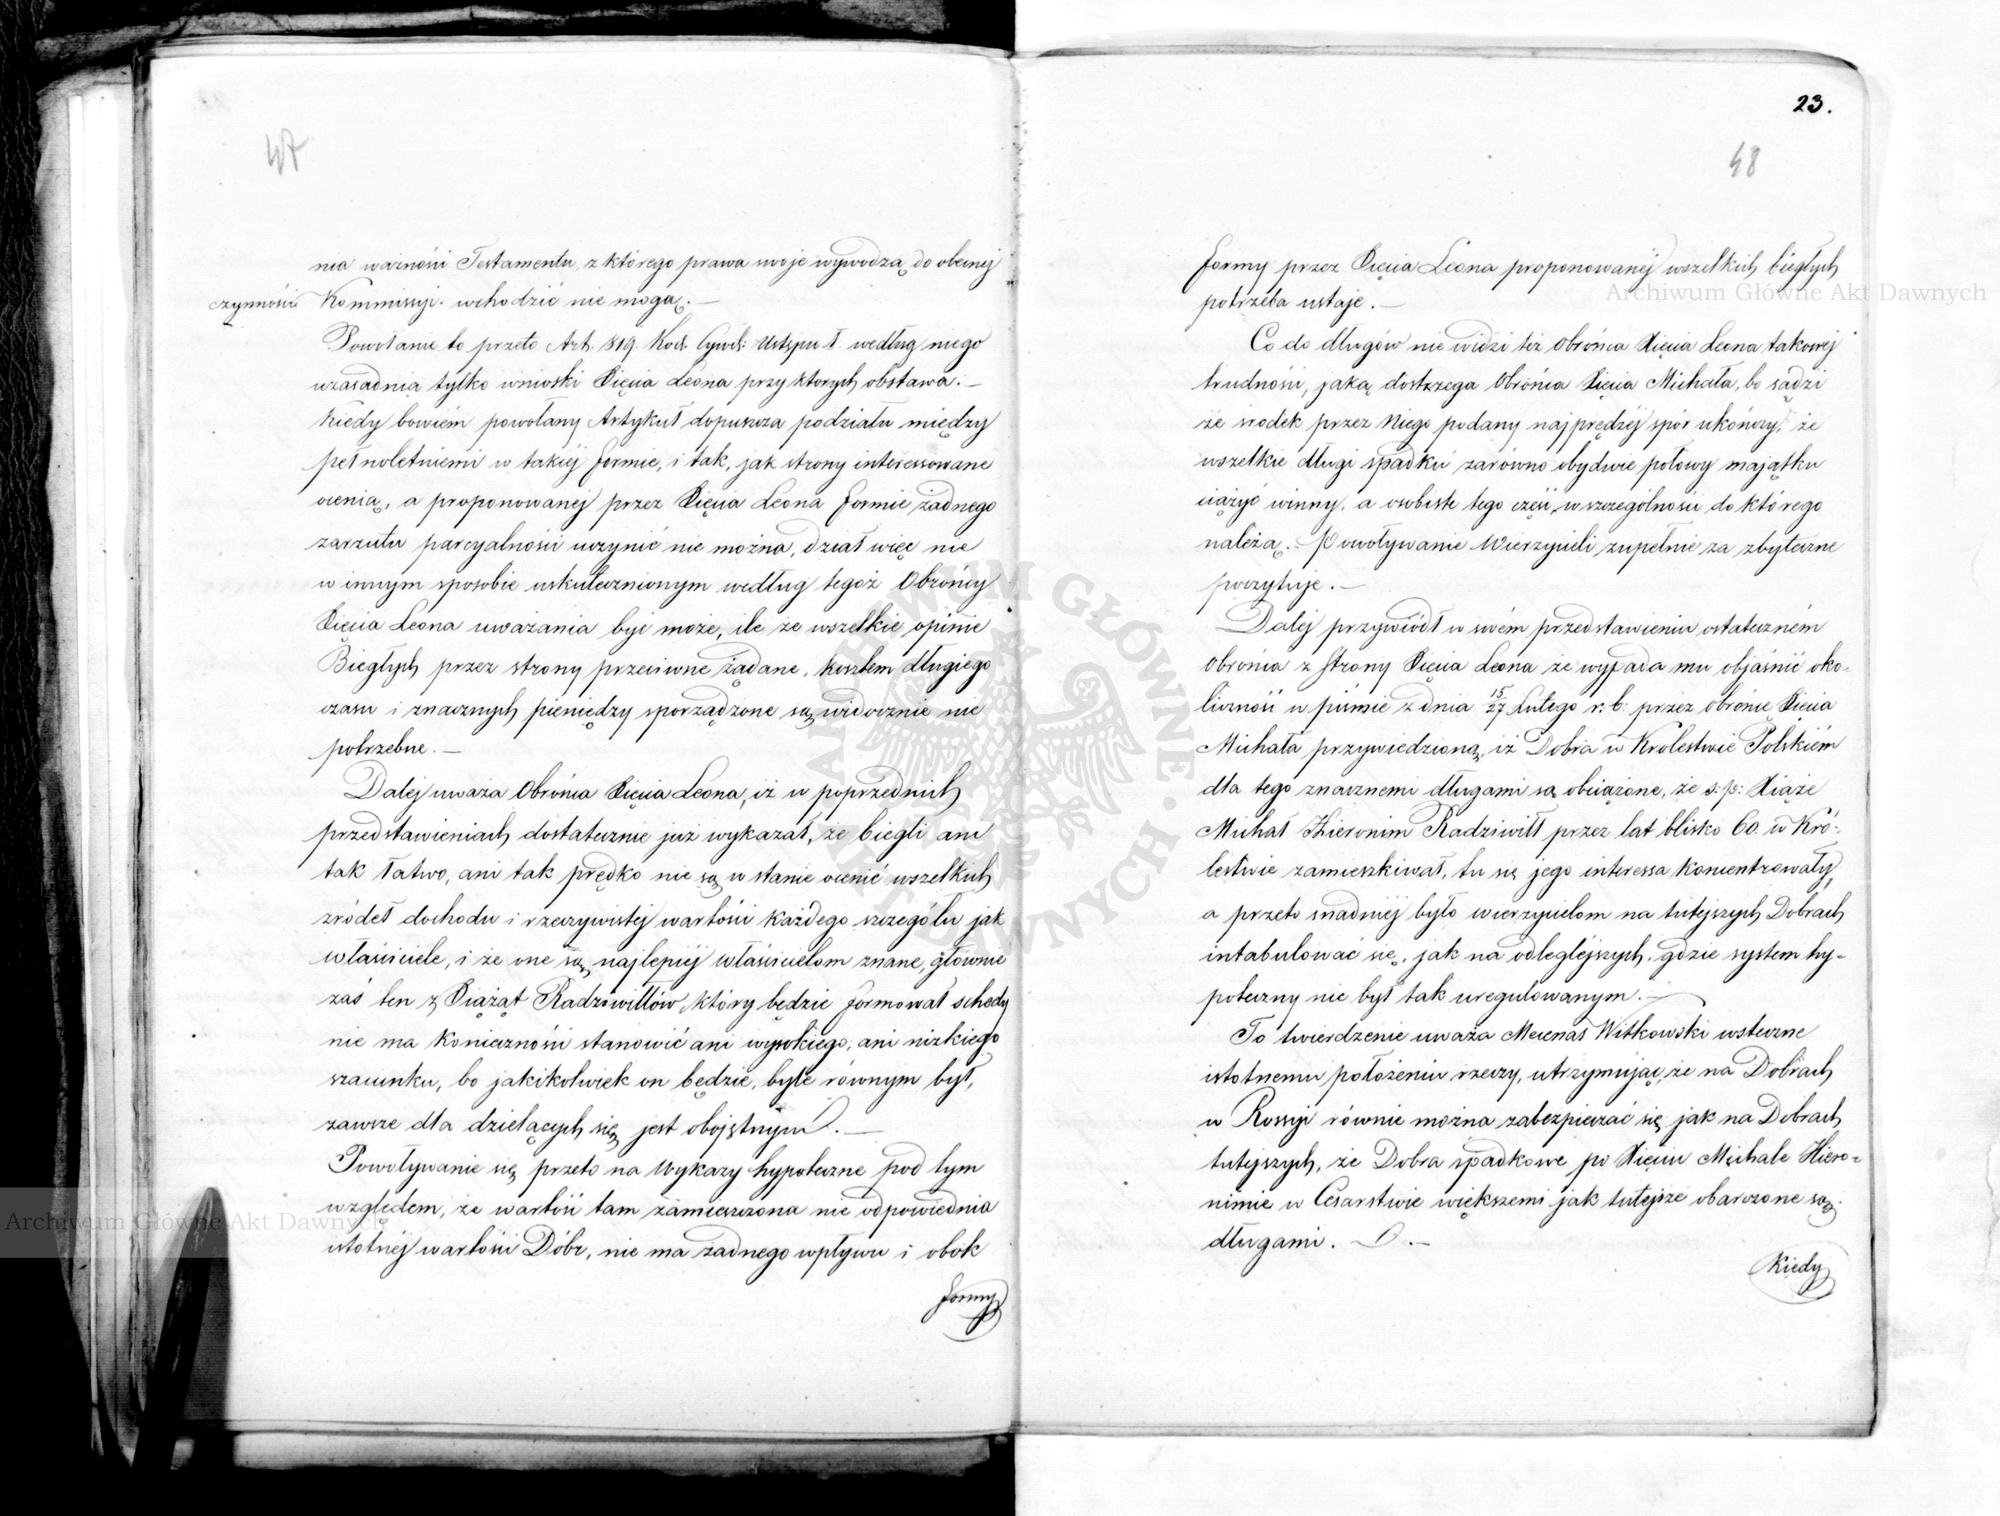 47
nia ważności Testamentu, z którego prawa swoje wywodzą, do obecnej
czynności Kommissyi wchodzić nie mogą. —
Powołanie to przeto Art. 819. Kod. Cywil: Ustępu 1. według niego
uzasadnia tylko wnioski Xięcia Leona przy których obstawa. —
Kiedy bowiem powołany Artykuł dopuszcza podziału między
pełnoletniemi w takiéj formie, i tak, jak strony interessowane
ocenią, a proponowanej przez Xięcia Leona formie żadnego
zarzutu parcyalności uczynić nie można, dział więc nie
w innym sposobie uskutecznionym według tegoż Obrońcy
Xięcia Leona uważania być może, ile że wszelkie opinie
Biegłych przez strony przeciwne żądane, kosztem długiego
czasu i znacznych pieniędzy sporządzone są widocznie nie
potrzebne. —
Dalej uważa Obrońca Xięcia Leona, iż w poprzednich
przedstawieniach dostatecznie już wykazał, że biegli ani
tak łatwo, ani tak prędko nie są w stanie ocenić wszelkich
źródeł dochodu i rzeczywistej wartości każdego szczegółu jak
właściciele, i że one są najlepiéj właścicielom znane, głównie
zaś ten z Xiążąt Radziwiłłów, który będzie formował schedy
nie ma konieczności stanowić ani wysokiego, ani nizkiego
szacunku, bo jakikolwiek on będzie, byle równym był,
zawsze dla dzielących się jest obojętnym. —
Powoływanie się przeto na Wykazy hypoteczne pod tym
względem, że wartość tam zamieszczona nie odpowiednia
istotnéj wartości Dóbr, nie ma żadnego wpływu i obok
formy
23.
48
formy przez Xięcia Leona proponowanéj wszelkich biegłych
potrzeba ustaje. —
Co do długów nie widzi téż Obrońca Xięcia Leona takowej
trudności, jaką dostrzega Obrońca Xięcia Michała, bo sądzi
że środek przez Niego podany najprędzéj spór ukończy, że
wszelkie długi spadku zarówno obydwie połowy majątku
ciążyć winny, a osobiste tego części, w szczególności do którego
należą. — Powoływanie Wierzycieli zupełnie za zbyteczne
poczytuje. —
Dalej przywiódł w swém przedstawieniu ostateczném
Obrońca z strony Xięcia Leona że wypada mu objaśnić oko-
liczność w piśmie z dnia 15/27 Lutego r: b: przez Obrońcę Xięcia
Michała przywiedzioną, iż Dobra w Królestwie Polskiém
dla tego znacznemi długami są obciążone, że s: p: Xiąże
Michał Hieronim Radziwiłł przez lat blisko 60. w Kró-
lestwie zamieszkiwał, tu się jego interessa koncentrowały,
a przeto snadniéj było wierzycielom na tutejszych Dobrach
intabulować się, jak na odleglejszych, gdzie system hy-
poteczny nie był tak uregulowanym. —
To twierdzenie uważa Mecenas Witkowski wsteczne
istotnemu położeniu rzeczy, utrzymując, że na Dobrach
w Rossyi równie można zabezpieczać się, jak na Dobrach
tutejszych, że Dobra spadkowe po Xięciu Michale Hiero-
nimie w Cesarstwie większemi jak tutejsze obarczone są
długami. —
Kiedy
Archiwum Główne Akt Dawnych
Archiwum Główne Akt Dawnych
ARCHIWUM GŁÓWNE AKT DAWNYCH